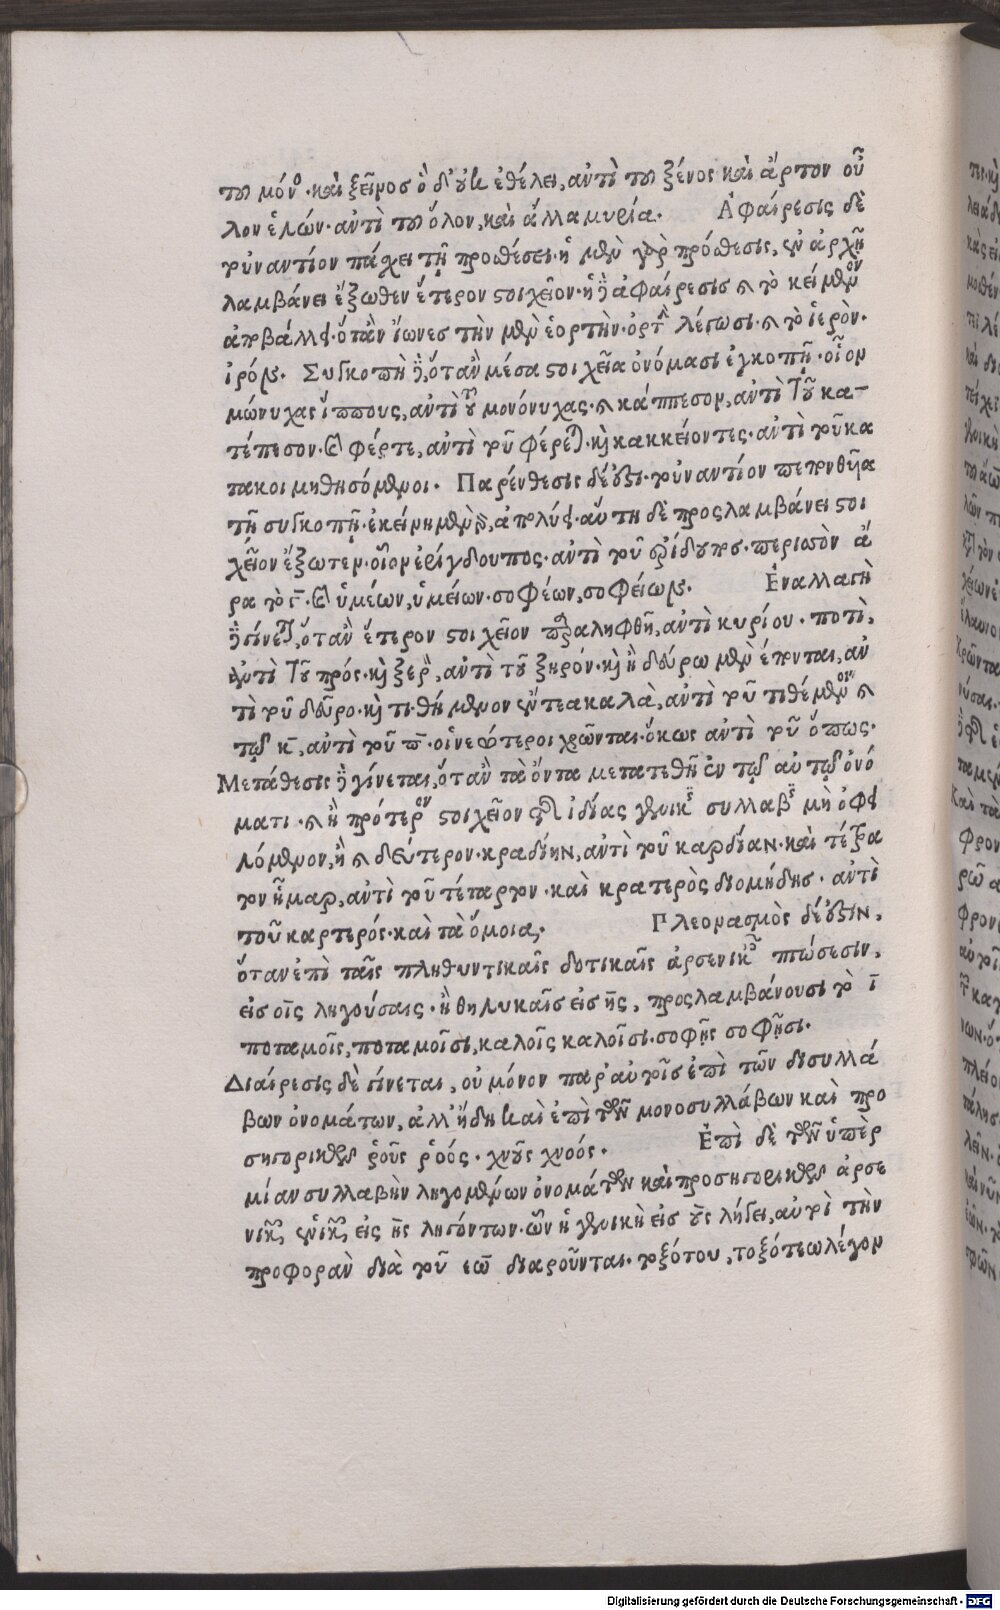 του μόνον· καὶ ξεῖνος ὃ δ' οὐκ ἐθέλει, ἀντὶ του ξένος καὶ ἄρτον οὖ
λον ἑλών· ἀντὶ του ὅλον, καὶ ἄλλα μυρία. Ἀφαίρεσις δὲ
τοὐναντίον πάσχει τῇ προσθέσει· ἡ μὲν γὰρ πρόσθεσις, ἐν ἀρχῇ
λαμβάνει ἔξωθεν ἕτερον στοιχεῖον· ἡ δὲ ἀφαίρεσις τὸ κείμενον
ἀποβάλλει· ὅταν ἴωνες τὴν μὲν ἑορτὴν· ὁρτὴν λέγωσι· τὸ ἱερὸν·
ἱρόν. Συγκοπὴ δὲ, ὅταν μέσα στοιχεῖα ὀνόμασι ἐγκοπῇ· οἷον
μώνυχας ἵππους, ἀντὶ τοῦ μονόνυχας· κάππεσον, ἀντὶ τοῦ κα-
τέπεσον· καὶ φέρτε, ἀντὶ τοῦ φέρετε· καὶ κακκείοντες· ἀντὶ τοῦ κα
τακοιμηθησόμενοι. Παρένθεσις δέ ἐστι· τοὐναντίον πεπονθυῖα
τῇ συγκοπῇ· ἐκείνη μὲν γὰρ, ἀπολύει· αὕτη δὲ προσλαμβάνει στοι
χεῖον ἔξωτερον· οἷον ἐρίγδουπος· ἀντὶ τοῦ ἐρίδουπος· περισσὸν ἄ
ρα τὸ γ̅· καὶ ὑμέων, ὑμείων· σοφέων, σοφείων. Ἐναλλαγὴ
δὲ γίνεται, ὅταν ἕτερον στοιχεῖον παραληφθῇ, ἀντὶ κυρίου· ποτὶ,
ἀντὶ τοῦ πρός· καὶ ξερὸν, ἀντὶ τοῦ ξηρόν· καὶ ἢ δούρω μὲν ἕπονται, ἀν
τὶ τοῦ δοῦρο· καὶ τιθήμενον ἔντεα καλὰ, ἀντὶ τοῦ τιθέμενον
τῷ κ̅, ἀντὶ τοῦ π̅· οἱ νεώτεροι χρῶνται· ὅκως ἀντὶ τοῦ ὅπως·
Μετάθεσις δὲ γίνεται, ὅταν τὰ ὄντα μετατεθῇ ἐν τῷ αὐτῷ ὀνό
ματι· ἢ πρότερον στοιχεῖον
λόμενον, ἢ δεύτερον· κραδίην, ἀντὶ τοῦ καρδίαν· καὶ τέτρα
τον ἦμαρ, ἀντὶ τοῦ τέταρτον· καὶ κρατερὸς διομήδης· ἀντὶ
τοῦ καρτερός· καὶ τὰ ὅμοια. Πλεονασμὸς δέ ἐστιν,
ὅταν ἐπὶ ταῖς πληθυντικαῖς δοτικαῖς ἀρσενικῶν πτώσεσιν,
εἰς οῖς ληγούσαις· ἢ θηλυκαῖς εἰς ῆς, προσλαμβάνουσι τὸ ι̅
ποταμοῖς, ποταμοῖσι, καλοῖς καλοῖσι· σοφῇς σοφῇσι·
Διαίρεσις δὲ γίνεται, οὐ μόνον παρ' αὐτοῖς ἐπὶ τῶν δισυλλά
βων ὀνομάτων, ἀλλ' ἤδη καὶ ἐπὶ τῶν μονοσυλλάβων καὶ προ
σηγορικῶν ῥοῦς ῥοός· χνοῦς χνοός. Ἐπὶ δὲ τῶν ὑπὲρ
μίαν συλλαβὴν ληγομένων ὀνομάτων καὶ προσηγορικῶν ἀρσε
νικῶν, ἑνικῶν, εἰς ῆς ληγόντων· ὧν ἡ γενικὴ εἰς οῦς λήγει, αὐτοὶ τὴν
προφορὰν διὰ τοῦ εω διαροῦνται· τοξότου, τοξότεω λέγον